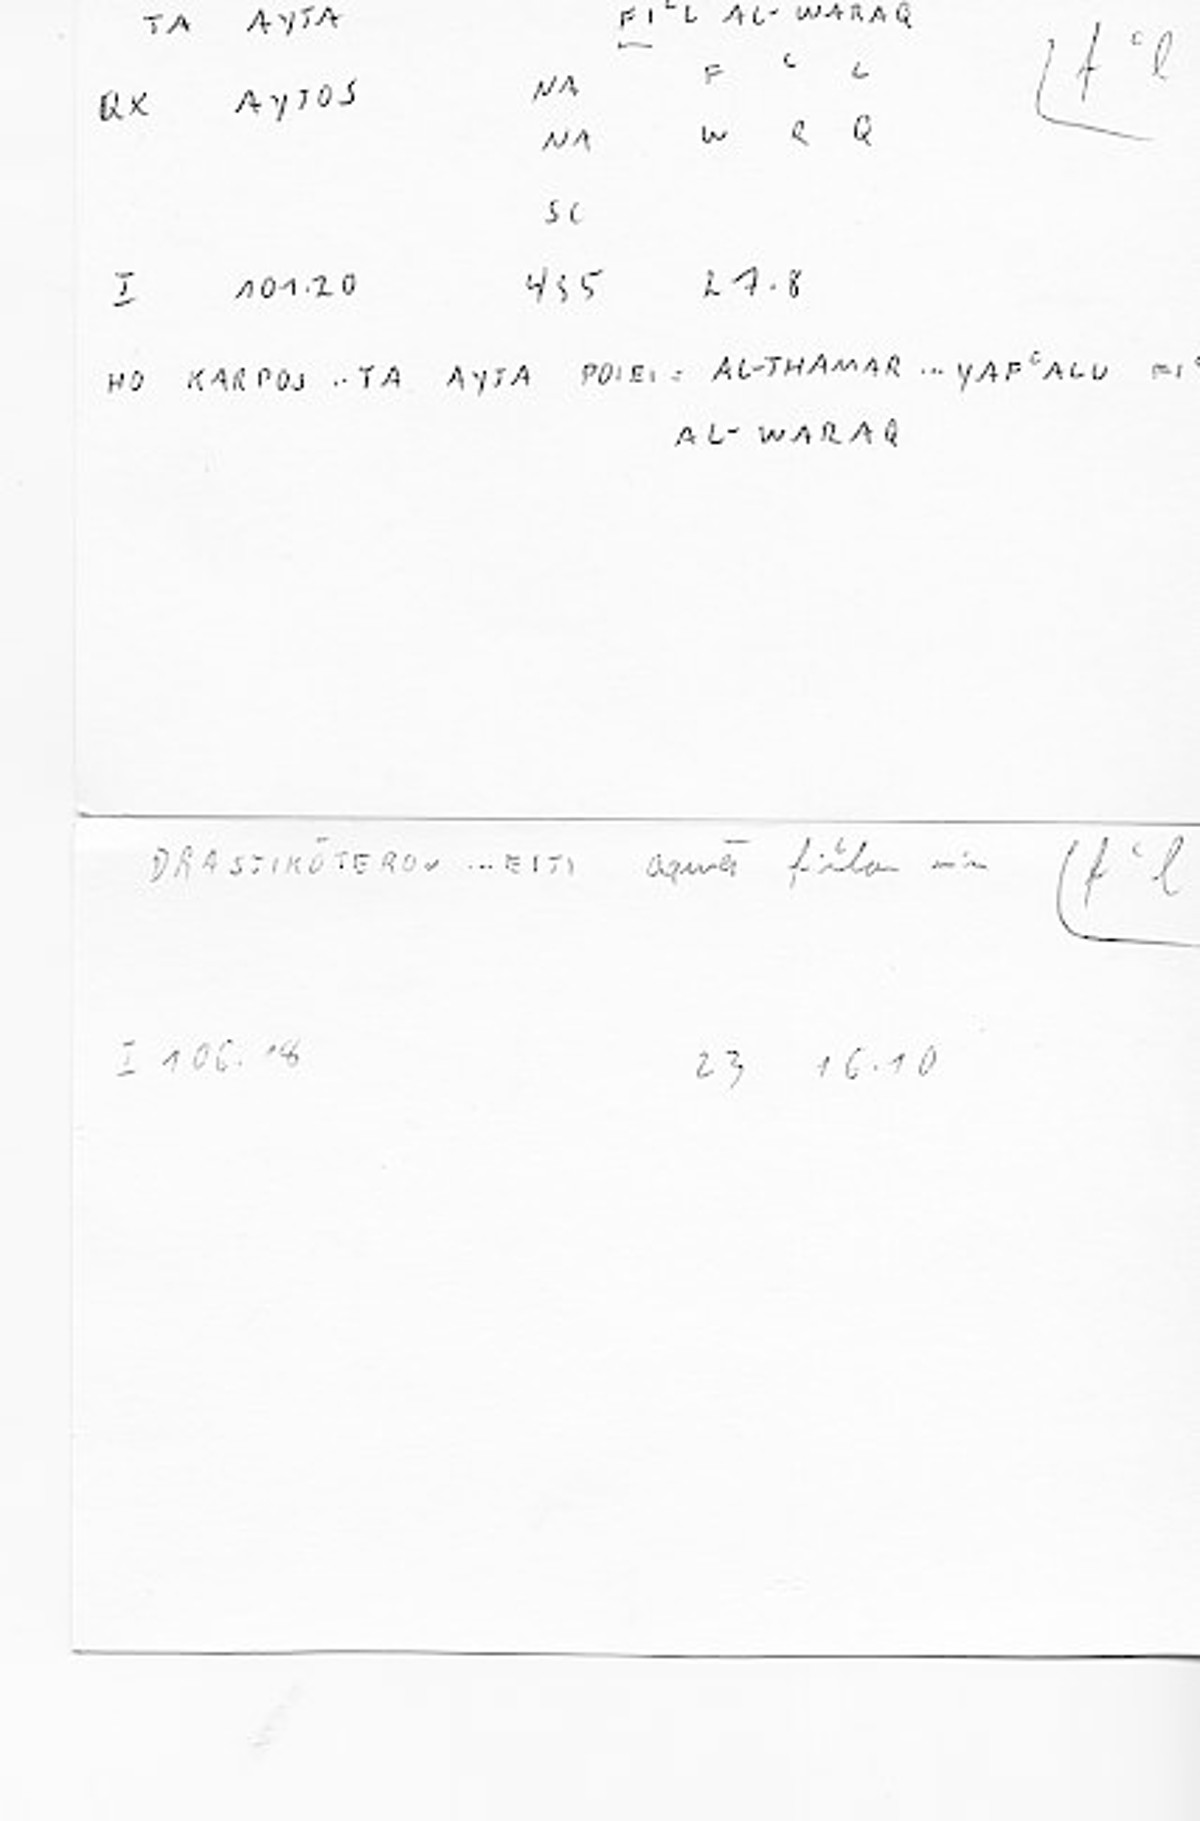 TA AYTA FIᶜL AL-WARAQ
QX AYTOS NA F ᶜ L
NA W R Q
fᶜl
SC
I 101.20 435 27.8
HO KARPOS ..TA AYTA POIEI = AL-THAMAR ... YAFᶜALU FIᶜ
AL-WARAQ
DRASTIKŌTERON ... ESTI aqwā fiᶜlan min fᶜl
I 106.18 23 16.10